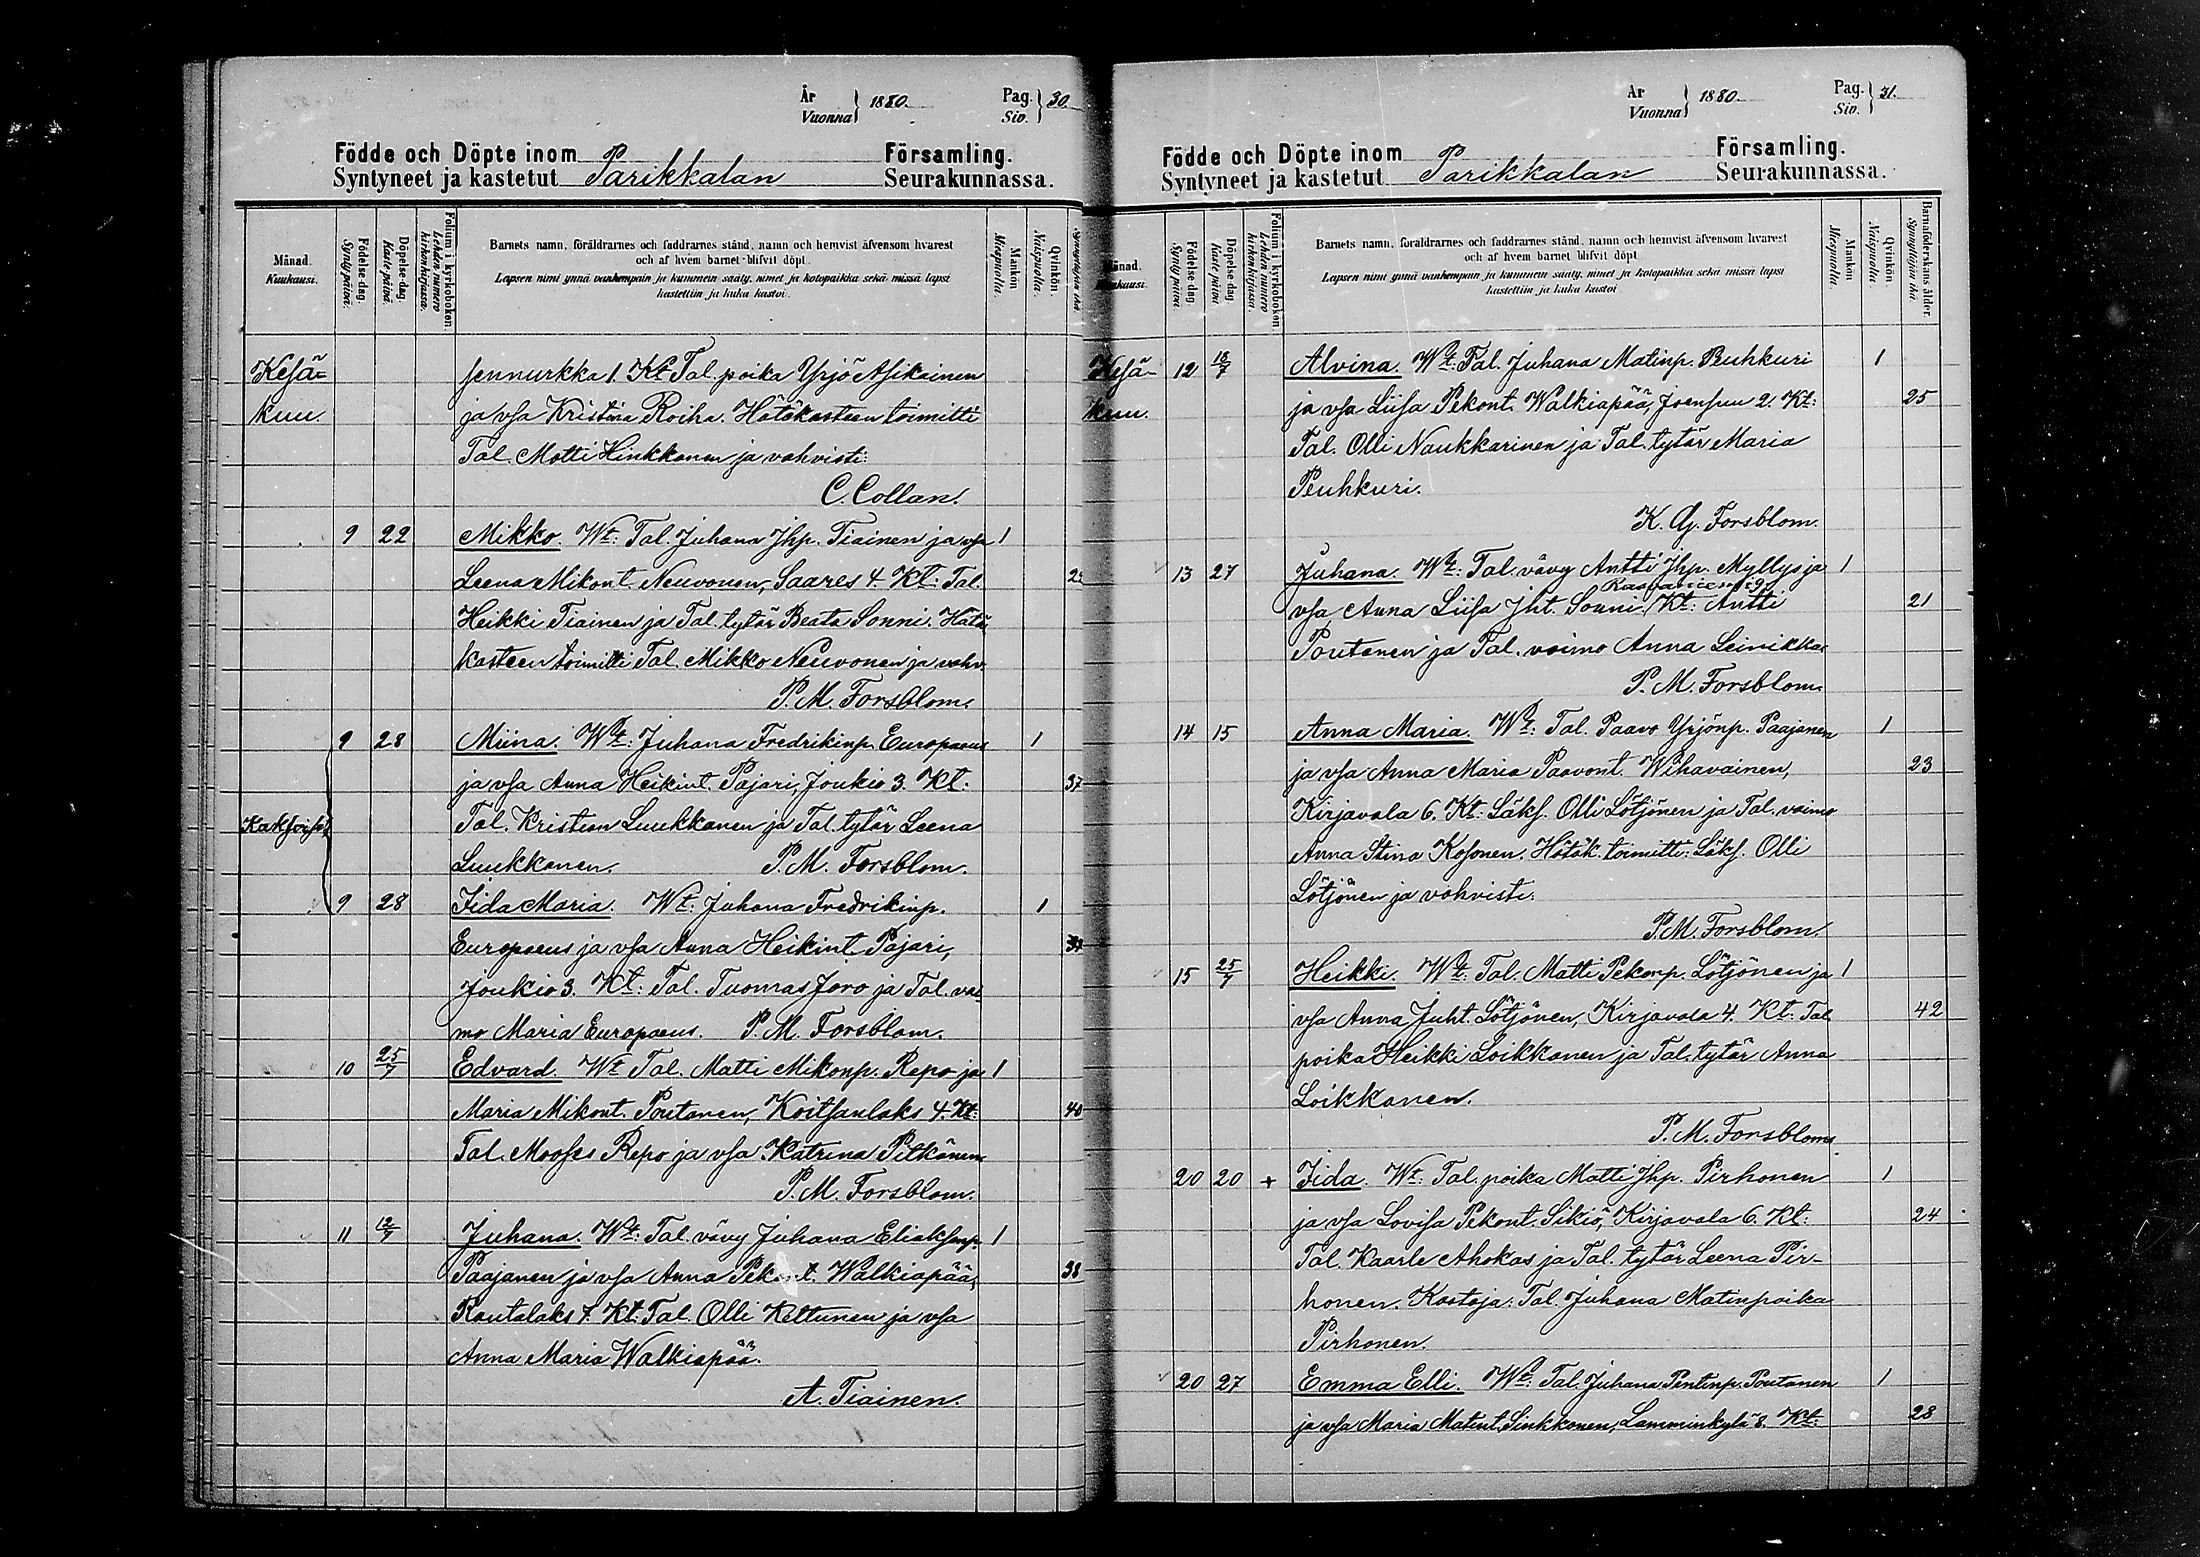 År 1880. Pag. 30
Vuonna Siv.
Födde och Döpte inom Parikkalan Församling.
Syntyneet ja kastetut Seurakunnassa.
Månad.
Kuukausi.
Födelse-dag.
Syntypäivä.
Döpelse-dag.
Kastepäivä.
Folium i kyrkoboken.
Lehden numero kirkonkirjassa.
Barnets namn, föräldrarnes och faddrarnes stånd, namn och hemvist äfvensom hvarest
och af hvem barnet blifvit döpt.
Lapsen nimi ynnä vanhempain ja kummein sääty, nimet ja kotopaikka sekä missä lapsi
kastettiin ja kuka kastoi.
Mankön
Miespuolia.
Qvinkön.
Naispuolia.
Kesä- Jennurkka 1. Kt Tal. poika Yrjö Asikainen
kuu. ja vsa Kristina Roiha. Hätäkasteen toimitti
Tal. Matti Hinkkanen ja vahvisti:
C. Collan.
9 22 Mikko. Wt: Tal. Juhana Jhp. Tiainen ja vsa 1
Leena Mikont. Neuvonen, Saares 4. Kt: Tal.
Heikki Tiainen ja Tal. tytär Beata Sonni. Hätä
kasteen toimitti Tal. Mikko Neuvonen ja vahv.
P. M. Forsblom.
9 28 Miina. Wt: Juhana Fredrikinp. Europaeus 1
ja vsa Anna Heikint. Pajari, Joukio 3. Kt: 37
Kaksoiset Tal. Kristian Luukkanen ja Tal. tytär Leena
Luukkanen. P. M. Forsblom.
9 28 Iida Maria. Wt: Juhana Fredrikinp. 1
Europaeus ja vsa Anna Heikint. Pajari, 37
Joukio 3. Kt: Tal. Tuomas Joro ja Tal. vai
mo Maria Europaeus. P. M. Forsblom.
10 25/7 Edvard. Wt Tal. Matti Mikonp. Repo ja 1
Maria Mikont. Poutanen, Koitsanlaks 4. Kt: 40
Tal. Mooses Repo ja vsa Katrina Pitkänen
P. M. Forsblom.
11 12/7 Juhana. Wt: Tal. vävy Juhana Eliaksenp. 1
Paajanen ja vsa Anna Pekont. Walkiapää, 38
Rautalaks 7. Kt: Tal. Olli Kettunen ja vsa
Anna Maria Walkiapää.
A. Tiainen.
År 1880. Pag. 31.
Vuonna Siv.
Födde och Döpte inom Parikkalan Församling.
Syntyneet ja kastetut Seurakunnassa.
Månad.
Kuukausi.
Födelse-dag.
Syntypäivä.
Döpelse-dag.
Kastepäivä.
Folium i kyrkoboken.
Lehden numero kirkonkirjassa.
Barnets namn, föräldrarnes och faddrarnes stånd, namn och hemvist äfvensom hvarest
och af hvem barnet blifvit döpt.
Lapsen nimi ynnä vanhempain ja kummein sääty, nimet ja kotopaikka sekä missä lapsi
kastettiin ja kuka kastoi.
Mankön
Miespuolia.
Qvinkön
Naispuolia.
Barnaföderskans ålder.
Synnyttäjän ikä.
Kesä- 12 18/7 Alvina. Wt: Tal. Juhana Matinp. Peuhkuri 1
kuu. ja vsa Liisa Pekont. Walkiapää, Joensuu 2. Kt: 25
Tal. Olli Naukkarinen ja Tal. tytär Maria
Peuhkuri.
K. Gj. Forsblom.
13 27 Juhana. Wt: Tal. vävy Antti Jhp. Myllys ja 1
vsa Anna Liisa Jht. Sonni, Kt: Antti 21
Poutanen ja Tal. vaimo Anna Leinikka
P. M. Forsblom.
14 15 Anna Maria. Wt: Tal. Paavo Yrjönp. Paajanen 1
ja vsa Anna Maria Paavont. Wihavainen, 23
Kirjavala 6. Kt: Läks. Olli Lötjönen ja Tal. vaimo
Anna Stina Kosonen. Hätäk. toimitti: Läks. Olli
Lötjönen ja vahvisti:
P. M. Forsblom.
15 25/7 Heikki. Wt: Tal. Matti Pekonp. Lötjönen ja 1
vsa Anna Juht. Lötjönen, Kirjavala 4. Kt: Tal. 42
poika Heikki Loikkanen ja Tal. tytär Anna
Loikkanen.
P. M. Forsblom
20 20 + Iida. Wt: Tal. poika Matti Jhp. Pirhonen 1
ja vsa Lovisa Pekont. Sikiö, Kirjavala 6. Kt: 24
Tal. Kaarle Ahokas ja Tal. tytär Leena Pir-
honen. Kastaja: Tal. Juhana Matinpoika
Pirhonen.
20 27 Emma Elli. Wt: Tal. Juhana Pentinp. Poutanen 1
ja vsa Maria Matint. Sinkkonen, Lamminkylä 8. Kt: 28